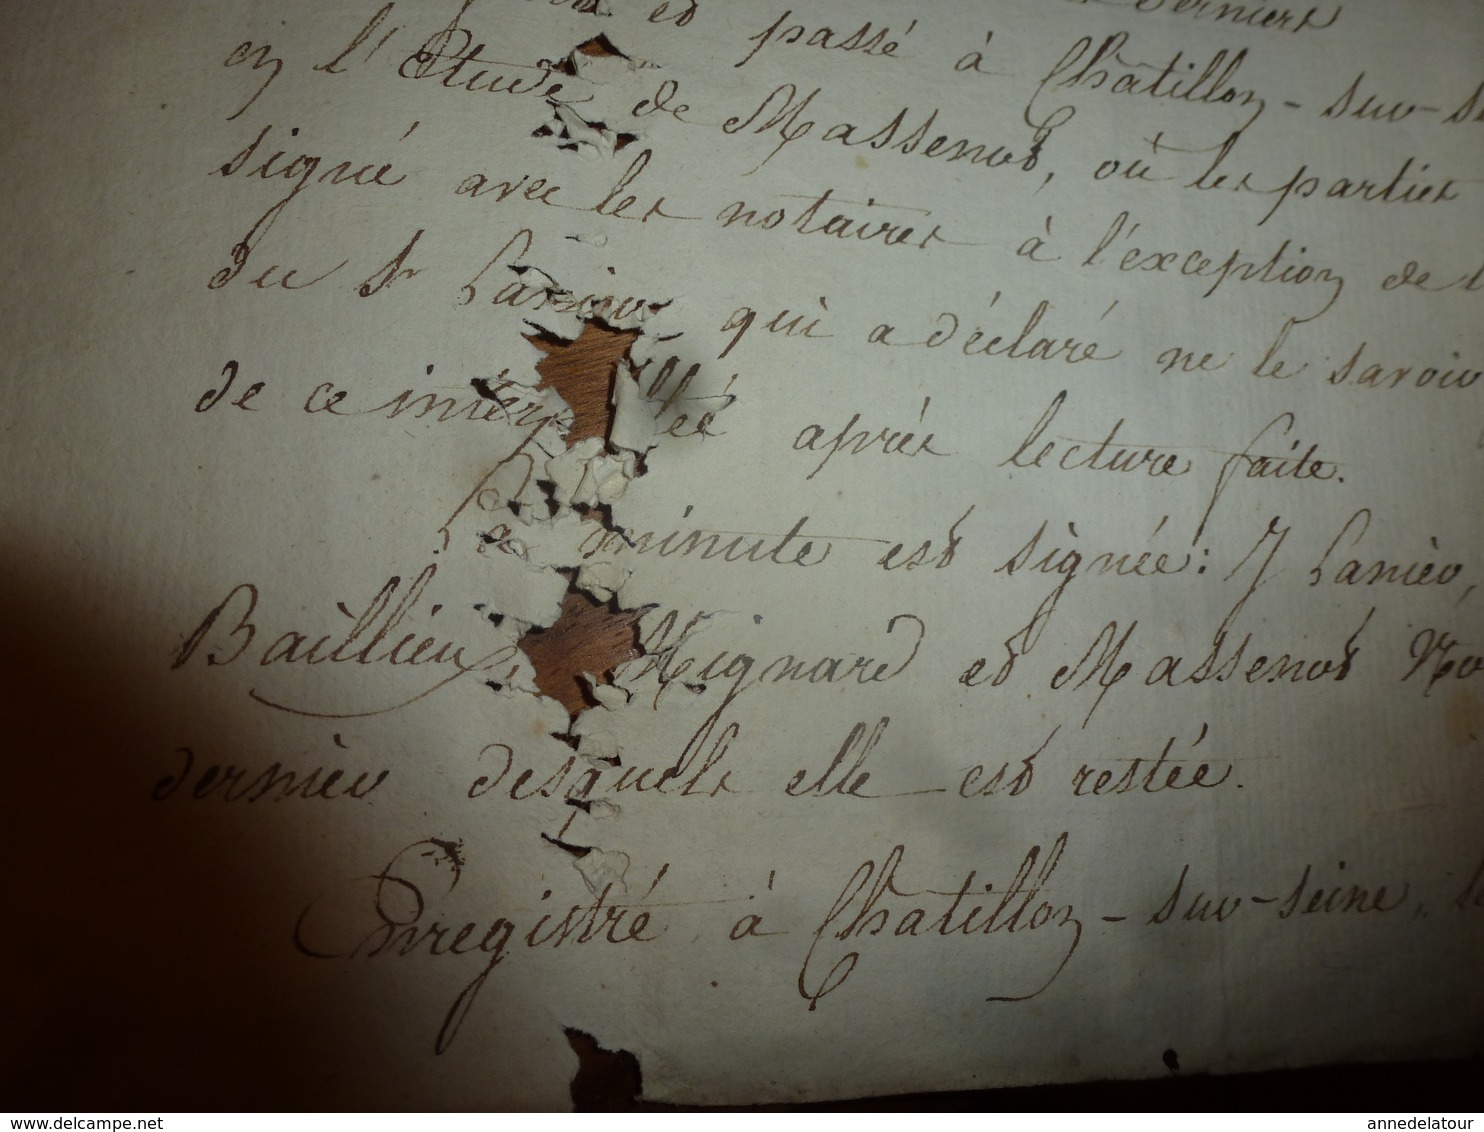 et derniers
et passé à Chatillon-sur-se
en l'Etude de Massenot, où les parties
signé avec les notaires à l'exception de l
du Sr Lanier qui a déclaré ne le savoir
de ce interpellé après lecture faite.
La minute est signée: J Lanier,
Baillieux, Mignard et Massenot No
dernier desquels elle est restée.
Enregistré à Chatillon-sur-seine, le
www.delcampe.net
annedelatour